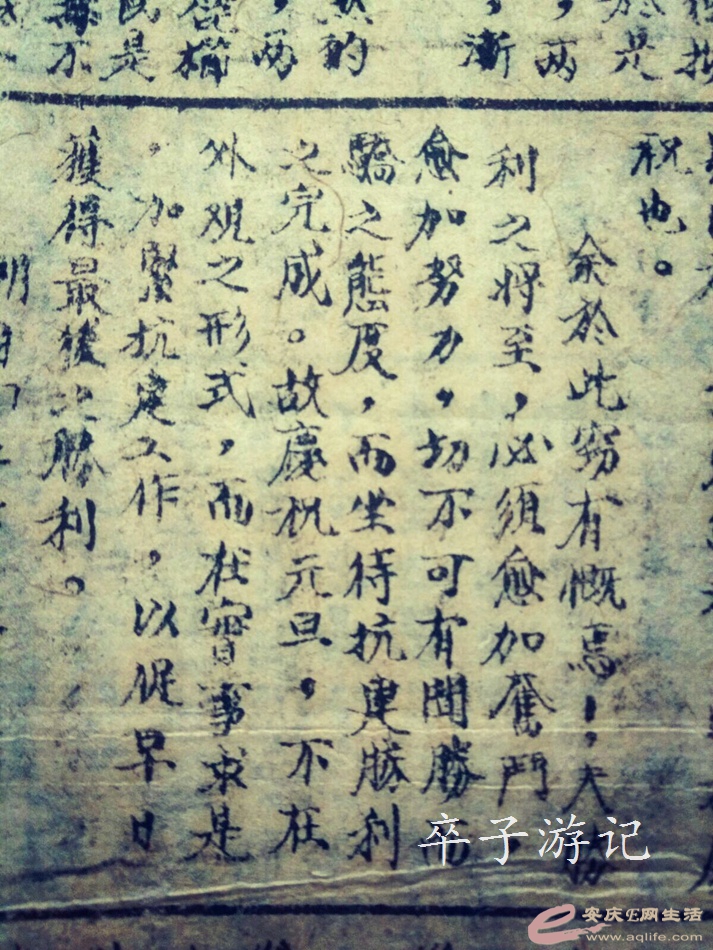 於是
，兩
，漸
的
，兩
是
不
祝也。
余於此窃有慨焉！，夫勝
利之將至，必須愈加奮鬥，
愈加努力，切不可有聞勝而
驕之態度，而坐待抗建勝利
之完成。故慶祝元旦，不在
外观之形式，而在實事求是
，加緊抗建工作，以促早日
獲得最後之勝利。
卒子游记
安庆E网生活
www.aqlife.com